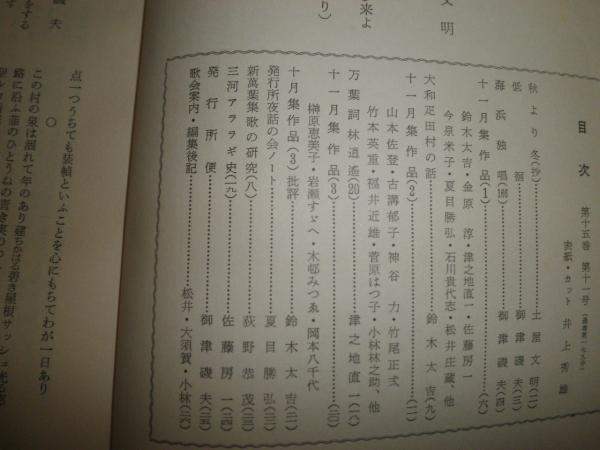 文明
来よ
り)
目次
第十五巻 第十一号
表紙・カット 井上秀雄
秋より冬(抄)……土屋文明(二)
低徊……御津磯夫(三)
海浜独唱……御津磯夫(四)
十一月集作品(1)……(六)
鈴木太吉・金原淳・津之地直一・佐藤房一
今泉米子・夏目勝弘・石川貴代志・松井庄蔵、他
大和疋田村の話……鈴木太吉(九)
十一月集作品(2)……(一一)
山本佐登・古溝郁子・神谷力・竹尾正式
竹本英重・福井近雄・菅原はつ子・小林林之助、他
万葉詞林逍遙(20)……津之地直一(一八)
十一月集作品(3)……(二〇)
榊原恵美子・岩瀬すゞへ・木邨みつゑ・岡本八千代
十月集作品(3)批評……鈴木太吉(二一)
発行所夜話の会ノート……夏目勝弘(二二)
新萬葉集歌の研究(八)……荻野恭茂(二三)
三河アララギ史(一九)……佐藤房一(二四)
発行所便……御津磯夫(二五)
歌会案内・編集後記……松井・大須賀・小林(二六)
磯夫
をする
す
点一つうちても装幀といふことを心にもちてわが一日あり
○
この村の泉は涸れて年のあり建ちかはる碧き屋根サッシュ光る窓
路に沿ふ藷のひとうねの青き